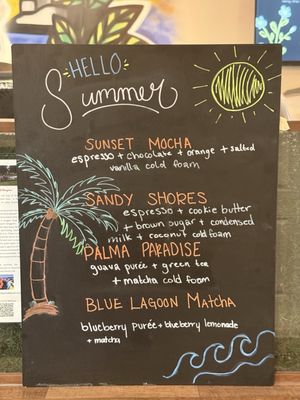 HELLO
Summer
SUNSET MOCHA
espresso + chocolate + orange + salted
vanilla cold foam
SANDY SHORES
espresso + cookie butter
+ brown sugar + condensed
milk + coconut cold foam
PALMA PARADISE
guava purée + green tea
+ matcha cold foam
BLUE LAGOON MATCHA
blueberry purée + blueberry lemonade
+ matcha